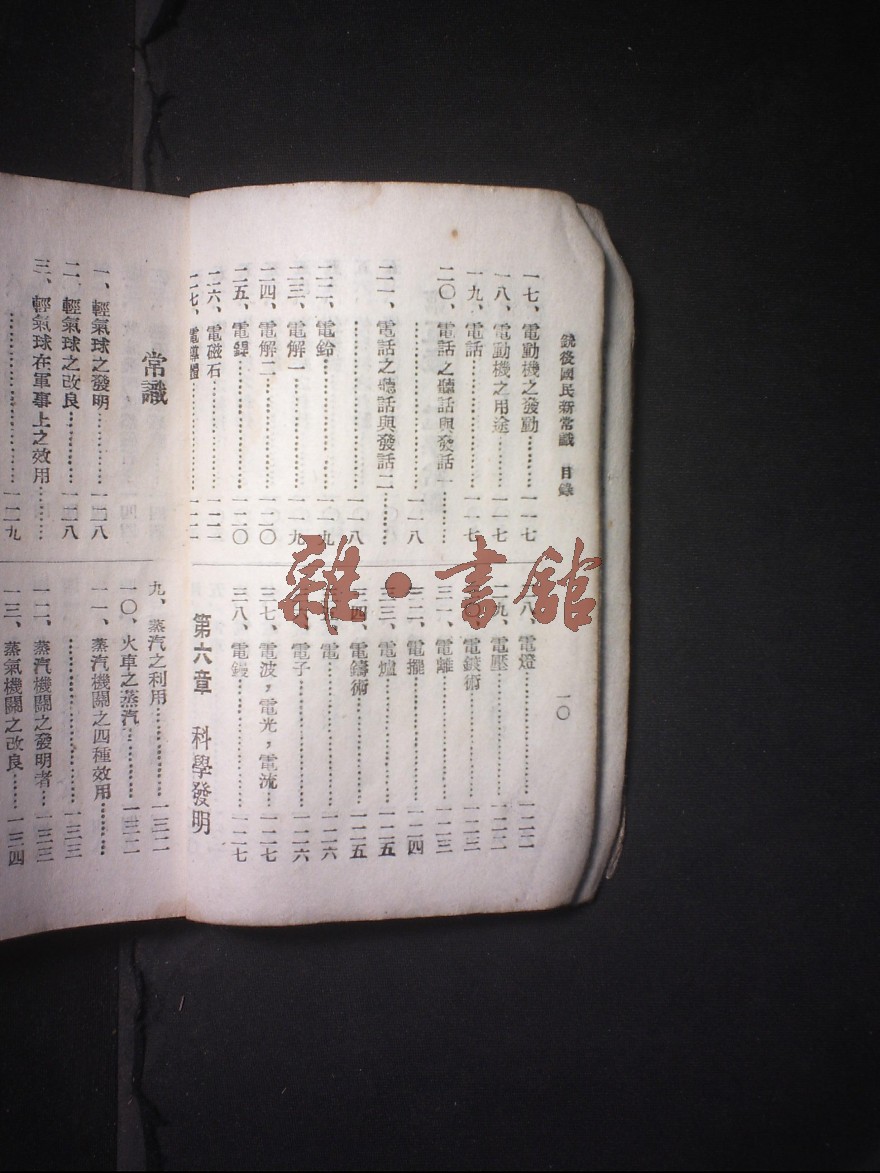 銃後國民新常識　目錄
一〇
一七、電動機之發動……一一七
一八、電動機之用途……一一七
一九、電話……一一七
二〇、電話之聽話與發話一……
……一一八
二一、電話之聽話與發話二……
……一一八
二二、電鈴……一一九
二三、電解一……一一九
二四、電解二……一二〇
二五、電鍍……一二〇
二六、電磁石……一二一
二七、電導體……一二一
電燈……一二二
電壓……一二二
電鍍術……一二三
三一、電離……一二三
三二、電擺……一二四
三三、電爐……一二五
三四、電鑄術……一二五
電……一二六
電子……一二六
三七、電波，電光，電流……一二七
三八、電鏝……一二七
第六章　科學發明
常識
一、輕氣球之發明……一二八
二、輕氣球之改良……一二八
三、輕氣球在軍事上之效用……
……一二九
九、蒸汽之利用……一三二
一〇、火車之蒸汽……一三二
一一、蒸汽機關之四種效用……
……一三三
一二、蒸汽機關之發明者……一三三
一三、蒸氣機關之改良……一三四
雜·書館